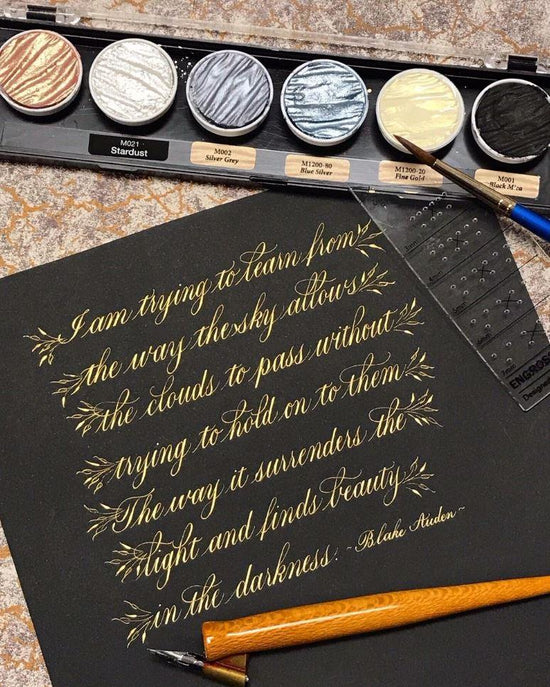 M021
Stardust
M002
Silver Grey
M1200-80
Blue Silver
M1200-20
Fine Gold
M001
Black Mica
ENGROS
Designe
I am trying to learn from
the way the sky allows
the clouds to pass without
trying to hold on to them
The way it surrenders the
light and finds beauty
in the darkness. ~ Blake Auden ~